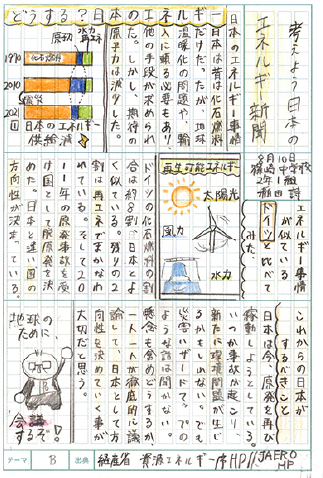 どうする?日本のエネルギー
考えよう日本の
エネルギー新聞
8月10日
篠崎中学校
2年1組
日本のエネルギー事情
日本は昔は化石燃料
だけだったが、地球
温暖化の問題や、輸
入に頼る必要もあり
他の手段が求められ
た。しかし、期待の
原子力は減少した。
原子力
水力
再エネ
化石燃料
1990
2010
日本のエネルギー
供給減
エネルギー事情
が似ている
ドイツと比べて
みた。
再生可能エネルギー
太陽光
風力
水力
ドイツの化石燃料の割
合は約8割で日本とよ
く似ている。残りの2
割は再エネでまかなわ
れている。そして20
11年の原発事故を受
け国として脱原発を決
めた。日本と違い国の
方向性が決まっている。
これからの日本が
するべきこと
日本は今、原発を再び
稼動しようとしている。
いつか事故が起こり、
新たに環境問題が生じ
るかもしれない。でも
災害ハザードで。プの
ような話は聞かない。
懸念も含めどうするか、
一人一人が徹底的に議
論して、日本として方
向性を決めていく事が
大切だと思う。
地球の
ために
会議
するぞ!
テーマ
B
出典
経産省 資源エネルギー庁HP
JAERO
HP